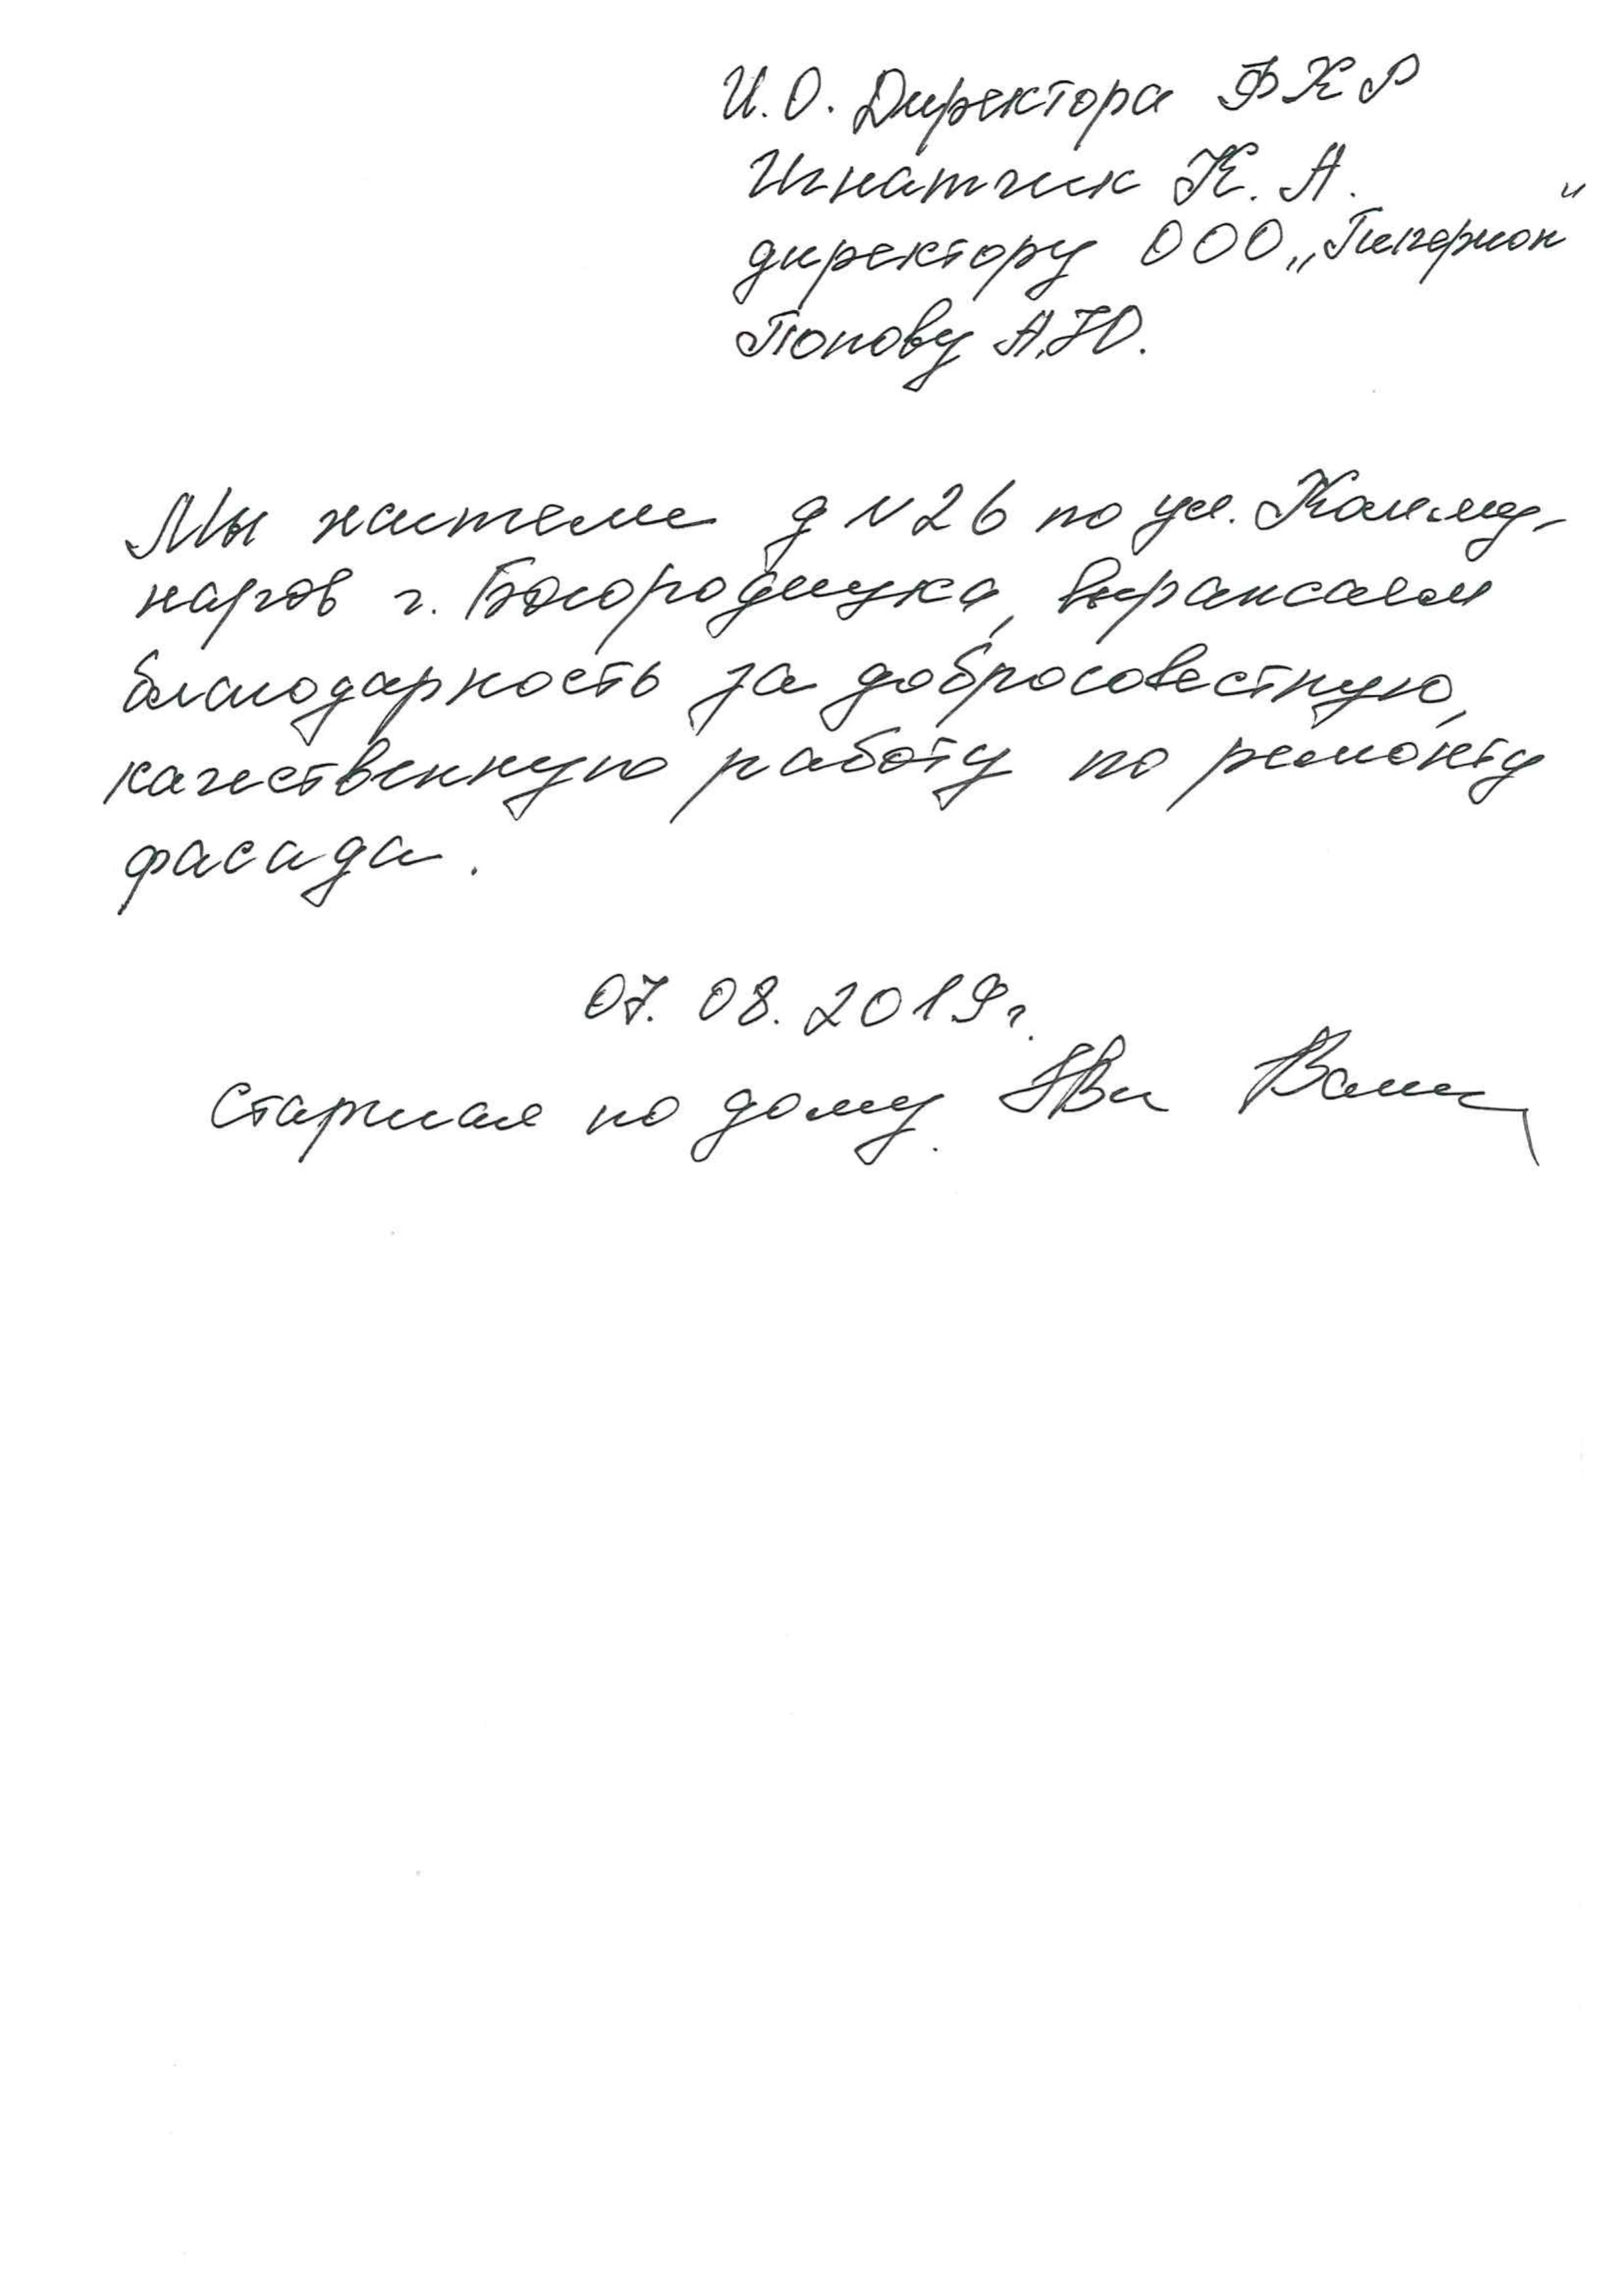 И.О. Директора ФКР
Игнатчик К. А.
директору ООО „Гиперион"
Попову А.Ю.
Мы жители д N 26 по ул. Комму-
наров г. Богородицка, выражаем
благодарность за добросовестную,
качественную работу по ремонту
фасада.
07. 08. 2019г.
Старшая по дому.